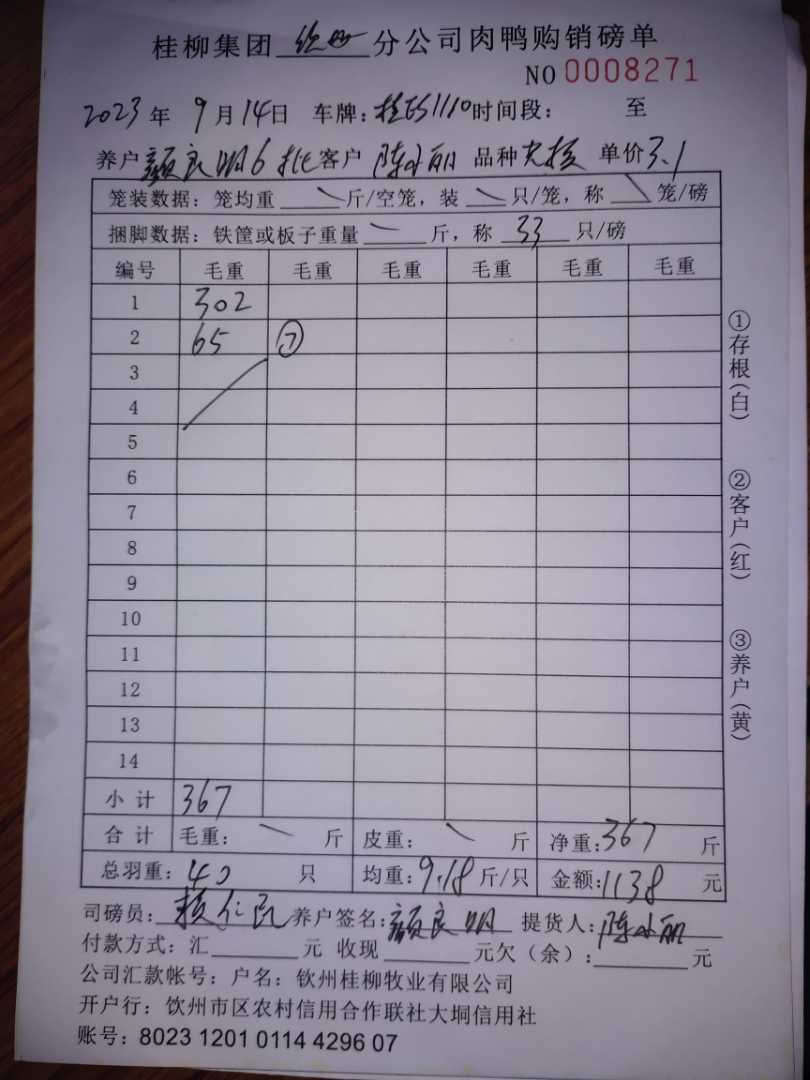 桂柳集团 钦州 分公司肉鸭购销磅单
NO 0008271
2023 年 9 月 14 日 车牌: 1110 时间段: 至
养户 颜良明 6 批 客户 陈小丽 品种 大核 单价 3.1
笼装数据: 笼均重 斤/空笼, 装 只/笼, 称 笼/磅
捆脚数据: 铁筐或板子重量 斤, 称 33 只/磅
编号 毛重 毛重 毛重 毛重 毛重 毛重
1 302
2 65 ⑦
3
4
5
6
7
8
9
10
11
12
13
14
小计 367
合计 毛重: 斤 皮重: 斤 净重: 367 斤
总羽重: 40 只 均重: 9.18 斤/只 金额: 1138 元
司磅员: 养户签名: 颜良明 提货人: 陈小丽
付款方式: 汇 元 收现 元欠（余）: 元
公司汇款帐号: 户名: 钦州桂柳牧业有限公司
开户行: 钦州市区农村信用合作联社大垌信用社
账号: 8023 1201 0114 4296 07
①存根(白)
②客户(红)
③养户(黄)